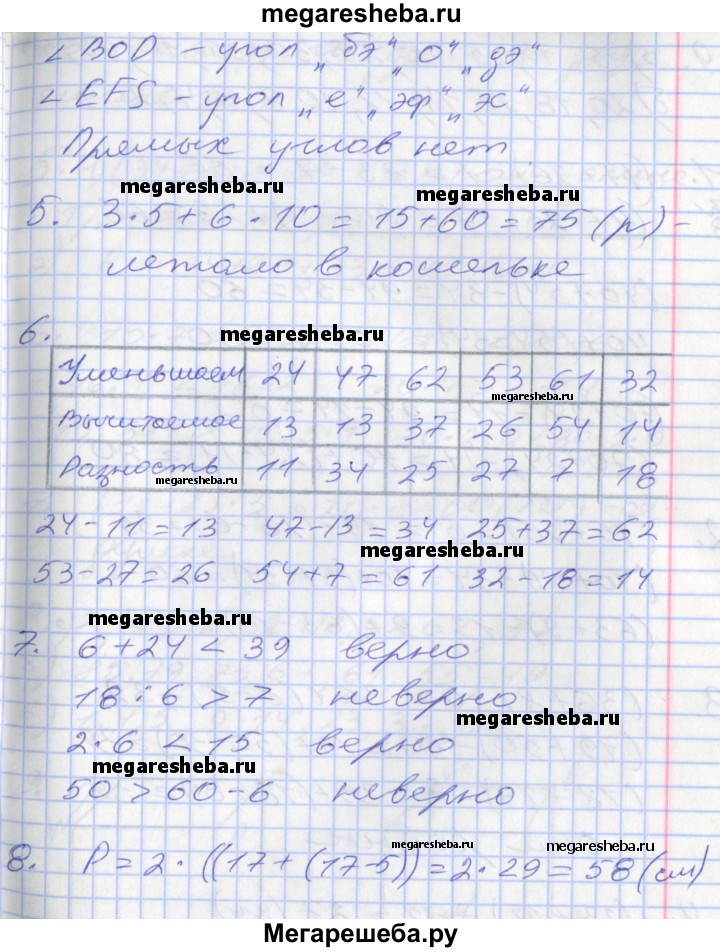 megaresheba.ru
∠BOD – угол „бэ“ „О“ „дэ“
∠EFS – угол „е“ „эф“ „эс“
Прямых углов нет
megaresheba.ru megaresheba.ru
5. 3·5+6·10=15+60=75 (р) –
летало в кошельке
megaresheba.ru
6.
Уменьшаем 24 47 62 53 61 32
megaresheba.ru
Вычитаемое 13 13 37 26 54 14
Разность 11 34 25 27 7 18
megaresheba.ru
24-11=13 47-13=34 25+37=62
megaresheba.ru
53-27=26 54+7=61 32-18=14
megaresheba.ru
7. 6+24<39 верно
18:6>7 неверно
megaresheba.ru
2·6<15 верно
megaresheba.ru
50>60-6 неверно
megaresheba.ru megaresheba.ru
8. P=2·((17+(17-5))=2·29=58(см)
Мегарешеба.ру